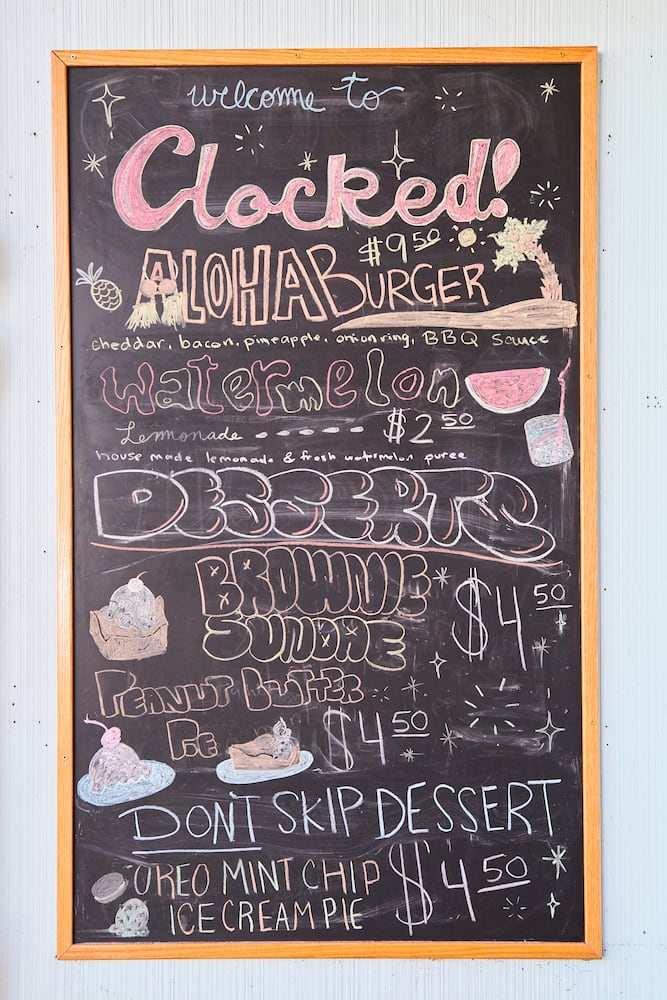 welcome to
Clocked!
ALOHA BURGER $9 50
cheddar, bacon, pineapple, onion ring, BBQ sauce
watermelon
Lemonade ------ $2 50
house made lemonade & fresh watermelon puree
DESSERTS
BROWNIE
SUNDAE $4 50
PEANUT BUTTER
PIE $4 50
DON'T SKIP DESSERT
OREO MINT CHIP
ICE CREAM PIE $4 50